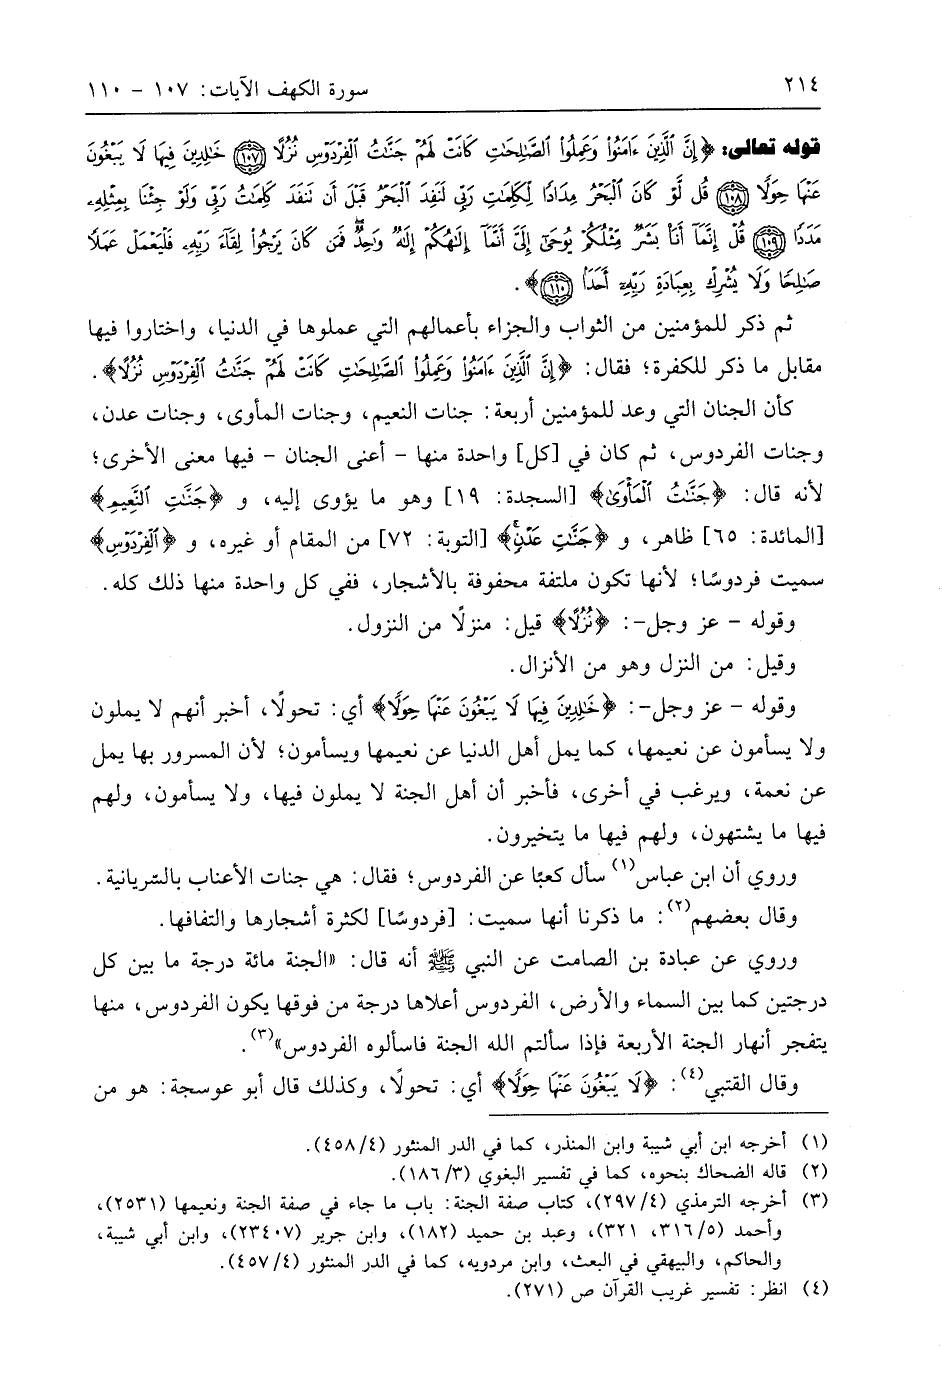 ٢١٤
سورة الكهف الآيات: ١٠٧ - ١١٠
قوله تعالى: ﴿إِنَّ ٱلَّذِينَ ءَامَنُوا۟ وَعَمِلُوا۟ ٱلصَّـٰلِحَـٰتِ كَانَتْ لَهُمْ جَنَّـٰتُ ٱلْفِرْدَوْسِ نُزُلًا ۝١٠٧ خَـٰلِدِينَ فِيهَا لَا يَبْغُونَ
عَنْهَا حِوَلًا ۝١٠٨ قُل لَّوْ كَانَ ٱلْبَحْرُ مِدَادًا لِّكَلِمَـٰتِ رَبِّى لَنَفِدَ ٱلْبَحْرُ قَبْلَ أَن تَنفَدَ كَلِمَـٰتُ رَبِّى وَلَوْ جِئْنَا بِمِثْلِهِۦ
مَدَدًا ۝١٠٩ قُلْ إِنَّمَآ أَنَا۠ بَشَرٌ مِّثْلُكُمْ يُوحَىٰٓ إِلَىَّ أَنَّمَآ إِلَـٰهُكُمْ إِلَـٰهٌ وَٰحِدٌ ۖ فَمَن كَانَ يَرْجُوا۟ لِقَآءَ رَبِّهِۦ فَلْيَعْمَلْ عَمَلًا
صَـٰلِحًا وَلَا يُشْرِكْ بِعِبَادَةِ رَبِّهِۦٓ أَحَدًۢا ۝١١٠﴾.
ثم ذكر للمؤمنين من الثواب والجزاء بأعمالهم التي عملوها في الدنيا، واختاروا فيها
مقابل ما ذكر للكفرة؛ فقال: ﴿إِنَّ ٱلَّذِينَ ءَامَنُوا۟ وَعَمِلُوا۟ ٱلصَّـٰلِحَـٰتِ كَانَتْ لَهُمْ جَنَّـٰتُ ٱلْفِرْدَوْسِ نُزُلًا﴾.
كأن الجنان التي وعد للمؤمنين أربعة: جنات النعيم، وجنات المأوى، وجنات عدن،
وجنات الفردوس، ثم كان في [كل] واحدة منها - أعنى الجنان - فيها معنى الأخرى؛
لأنه قال: ﴿جَنَّـٰتُ ٱلْمَأْوَىٰ﴾ [السجدة: ١٩] وهو ما يؤوى إليه، و ﴿جَنَّـٰتِ ٱلنَّعِيمِ﴾
[المائدة: ٦٥] ظاهر، و ﴿جَنَّـٰتِ عَدْنٍ ۚ﴾ [التوبة: ٧٢] من المقام أو غيره، و ﴿ٱلْفِرْدَوْسِ﴾
سميت فردوسًا؛ لأنها تكون ملتفة محفوفة بالأشجار، ففي كل واحدة منها ذلك كله.
وقوله - عز وجل-: ﴿نُزُلًا﴾ قيل: منزلًا من النزول.
وقيل: من النزل وهو من الأنزال.
وقوله - عز وجل-: ﴿خَـٰلِدِينَ فِيهَا لَا يَبْغُونَ عَنْهَا حِوَلًا﴾ أي: تحولًا، أخبر أنهم لا يملون
ولا يسأمون عن نعيمها، كما يمل أهل الدنيا عن نعيمها ويسأمون؛ لأن المسرور بها يمل
عن نعمة، ويرغب في أخرى، فأخبر أن أهل الجنة لا يملون فيها، ولا يسأمون، ولهم
فيها ما يشتهون، ولهم فيها ما يتخيرون.
وروي أن ابن عباس(١) سأل كعبًا عن الفردوس؛ فقال: هي جنات الأعناب بالسّريانية.
وقال بعضهم(٢): ما ذكرنا أنها سميت: [فردوسًا] لكثرة أشجارها والتفافها.
وروي عن عبادة بن الصامت عن النبي ﷺ أنه قال: «الجنة مائة درجة ما بين كل
درجتين كما بين السماء والأرض، الفردوس أعلاها درجة من فوقها يكون الفردوس، منها
يتفجر أنهار الجنة الأربعة فإذا سألتم الله الجنة فاسألوه الفردوس»(٣).
وقال القتبي(٤): ﴿لَا يَبْغُونَ عَنْهَا حِوَلًا﴾ أي: تحولًا، وكذلك قال أبو عوسجة: هو من
(١) أخرجه ابن أبي شيبة وابن المنذر، كما في الدر المنثور (٤٥٨/٤).
(٢) قاله الضحاك بنحوه، كما في تفسير البغوي (١٨٦/٣).
(٣) أخرجه الترمذي (٢٩٧/٤)، كتاب صفة الجنة: باب ما جاء في صفة الجنة ونعيمها (٢٥٣١)،
وأحمد (٣١٦/٥، ٣٢١)، وعبد بن حميد (١٨٢)، وابن جرير (٢٣٤٠٧)، وابن أبي شيبة،
والحاكم، والبيهقي في البعث، وابن مردويه، كما في الدر المنثور (٤٥٧/٤).
(٤) انظر: تفسير غريب القرآن ص (٢٧١).